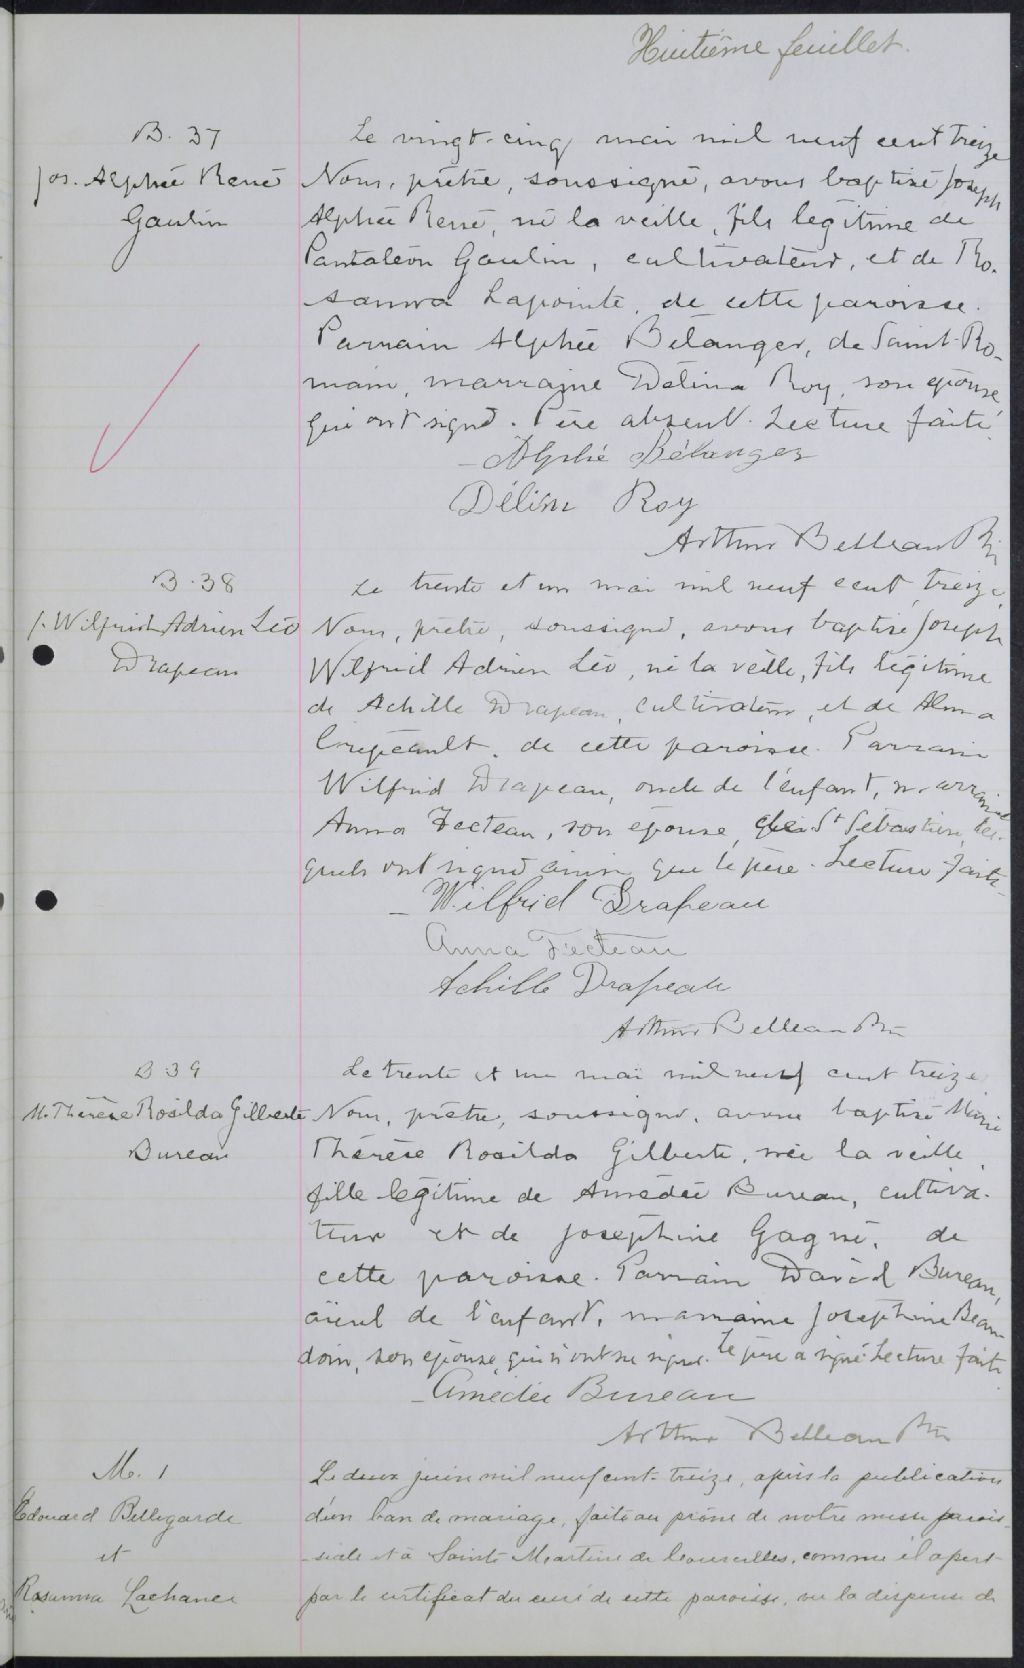 Huitième feuillet.
B. 37
Jos. Alphée René
Gaulin
Le vingt-cinq mai mil neuf cent treize
Nous, prêtre, soussigné, avons baptisé Joseph
Alphée René, né la veille, fils légitime de
Pantaléon Gaulin, cultivateur, et de Ro-
sanna Lapointe, de cette paroisse.
Parrain Alphée Bélanger, de Saint-Ro-
main, marraine Délina Roy, son épouse,
qui ont signé. Père absent. Lecture faite.
Alphé Bélanger
Délina Roy
Arthur Belleau Ptr
B. 38
J. Wilfrid Adrien Léo
Drapeau
Le trente et un mai mil neuf cent treize,
Nous, prêtre, soussigné, avons baptisé Joseph
Wilfrid Adrien Léo, né la veille, fils légitime
de Achille Drapeau, cultivateur, et de Alma
de cette paroisse. Parrain
Wilfrid Drapeau, oncle de l'enfant, marraine
Anna Fecteau, son épouse, St Sébastien, les-
quels ont signé ainsi que le père. Lecture faite.
Wilfrid Drapeau
Anna Fecteau
Achille Drapeau
Arthur Belleau Ptr
B 39
M. Thérèse Rosilda Gilberte
Bureau
Le trente et un mai mil neuf cent treize
Nous, prêtre, soussigné, avons baptisé Marie
Thérèse Rosilda Gilberte, née la veille,
fille légitime de Amédée Bureau, cultiva-
teur et de Joséphine Gagné, de
cette paroisse. Parrain David Bureau,
aïeul de l'enfant, marraine Joséphine Beau-
doin, son épouse, qui n'ont su signer. Le père a signé. Lecture faite.
Amédée Bureau
Arthur Belleau Ptr
M. 1
Edouard Bellegarde
et
Rosanna Lachance
Le deux juin mil neuf cent-treize, après la publication
d'un ban de mariage, faite au prône de notre messe parois-
-siale et à Sainte Martine de Courcelles, comme il apert
par le certificat du curé de cette paroisse, vu la dispense de